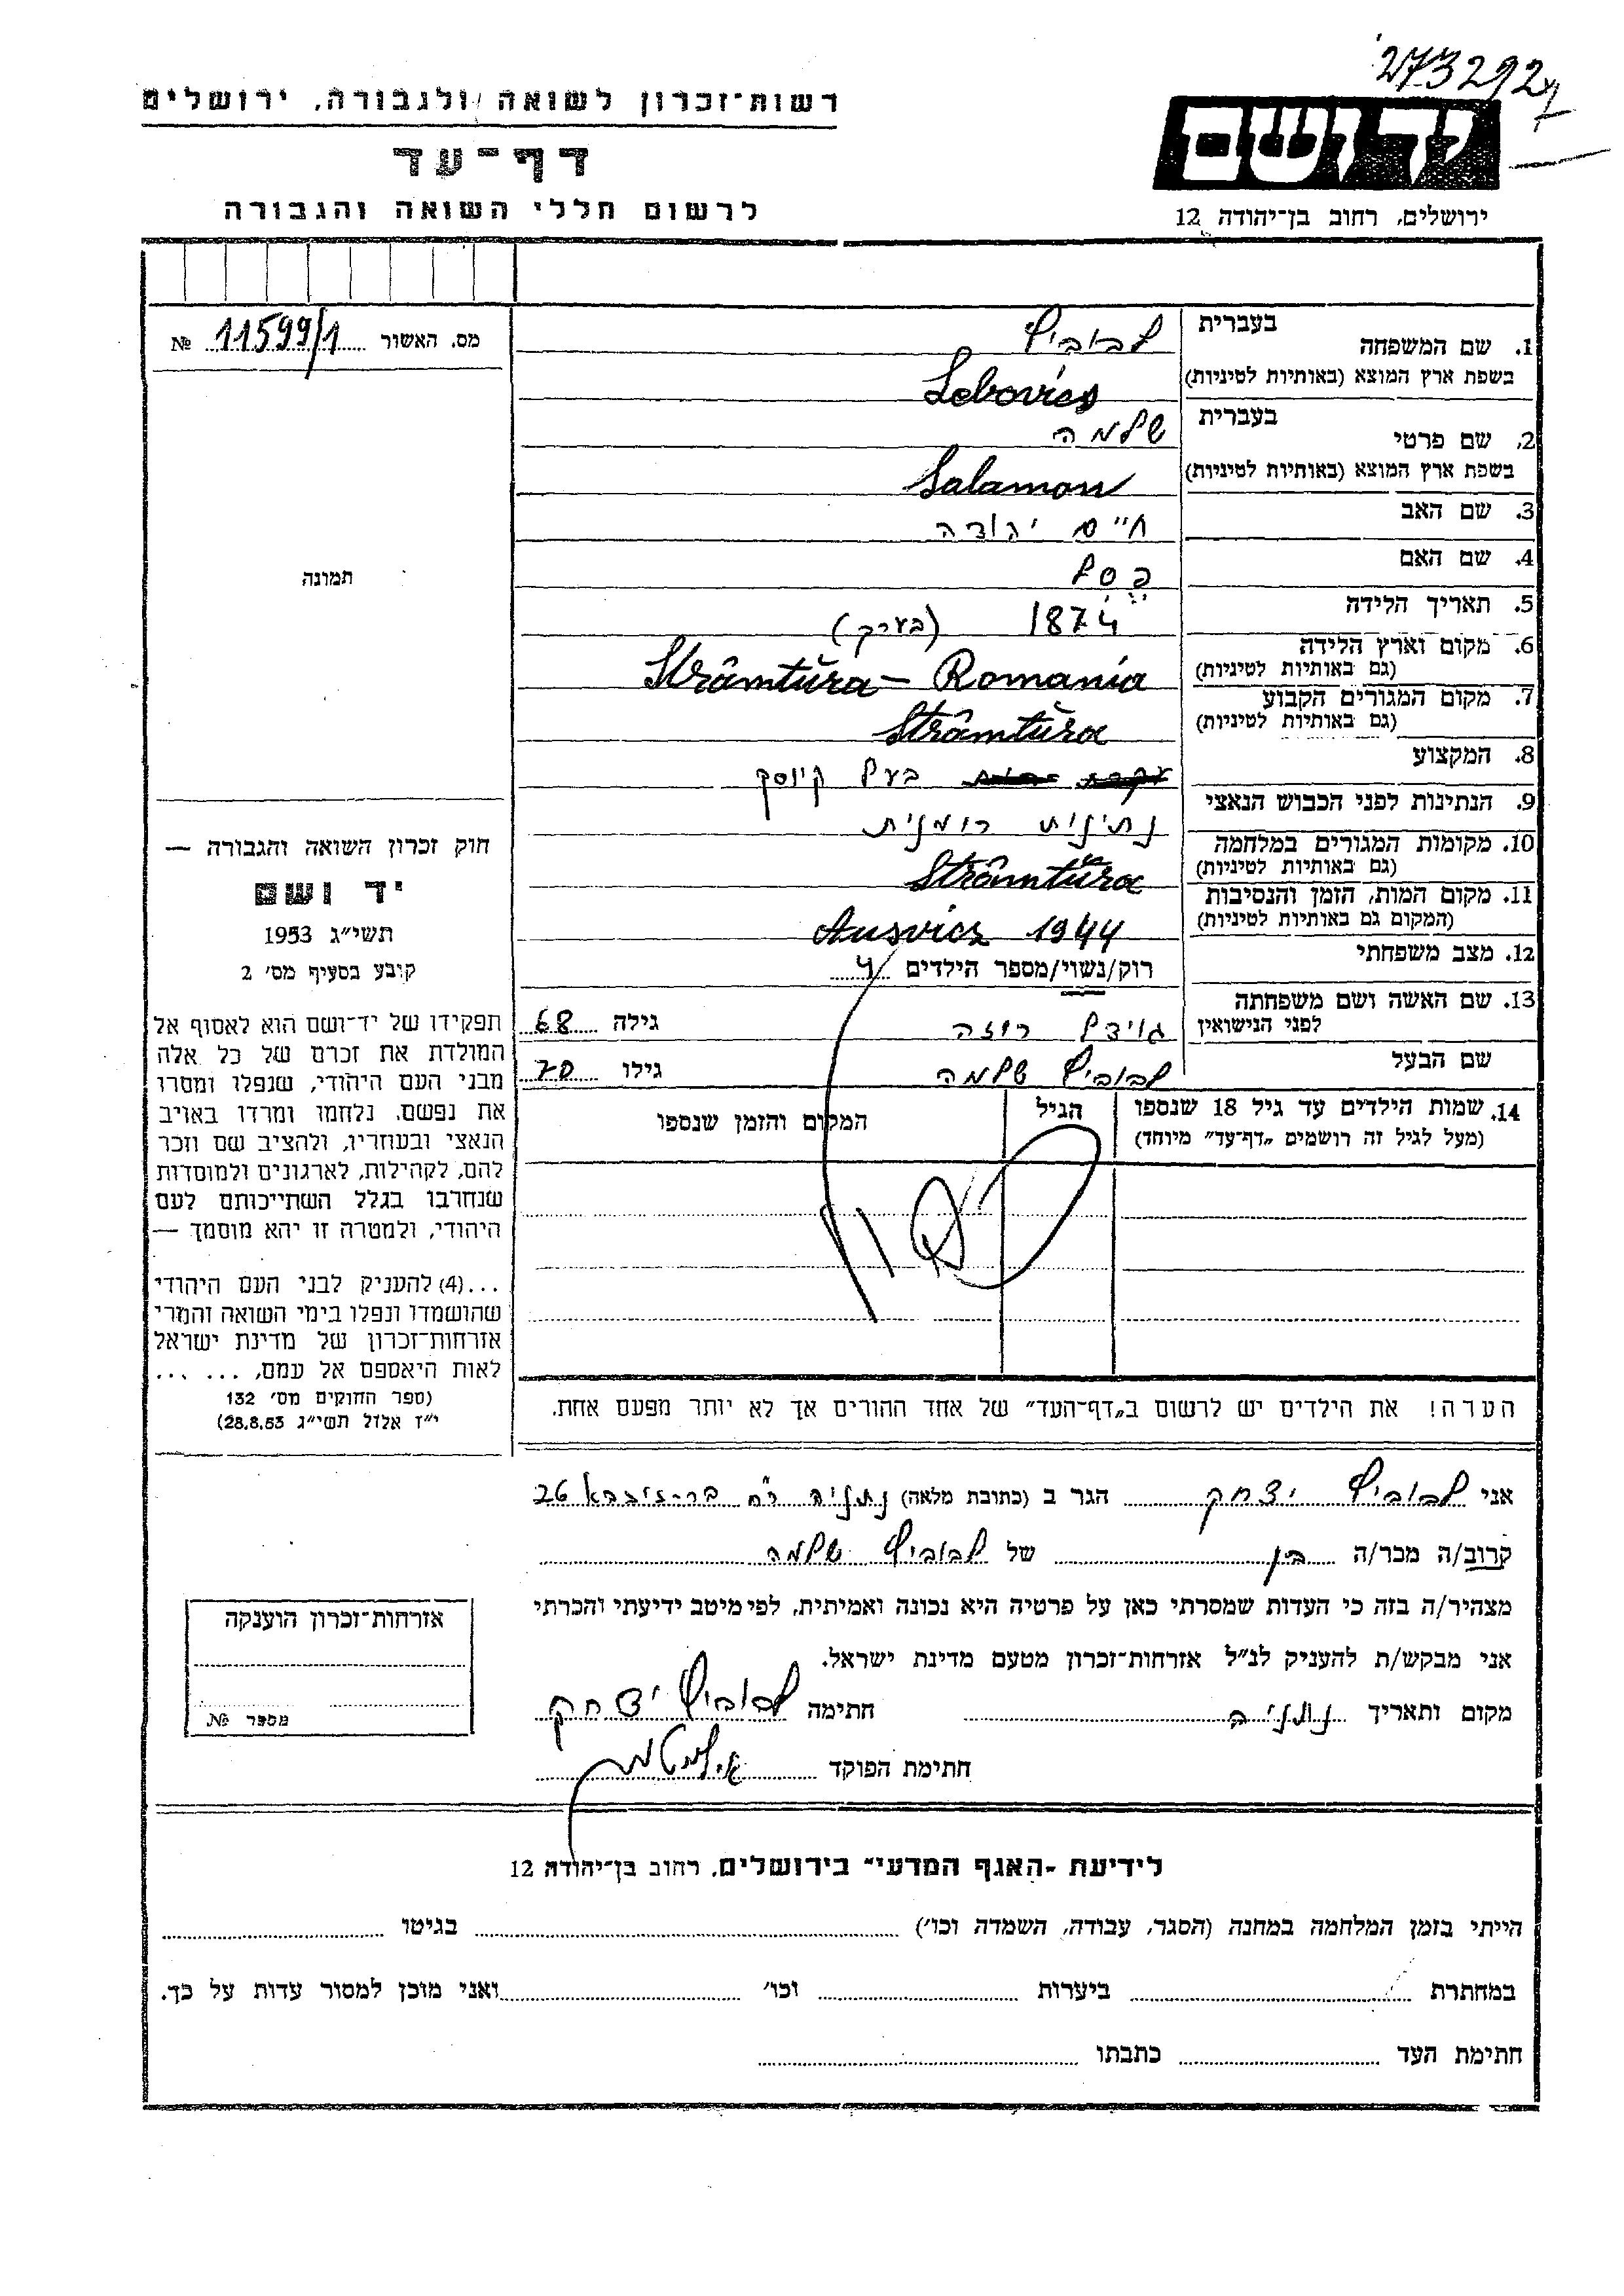 273292
רשות־זכרון לשואה ולגבורה, ירושלים
דף־עד
לרשום חללי השואה והגבורה
יד ושם
ירושלים, רחוב בן־יהודה 12
מס. האשור 11599/1 №
תמונה
חוק זכרון השואה והגבורה —
יד ושם
תשי״ג 1953
קובע בסעיף מס׳ 2
תפקידו של יד־ושם הוא לאסוף אל
המולדת את זכרם של כל אלה
מבני העם היהודי, שנפלו ומסרו
את נפשם, נלחמו ומרדו באויב
הנאצי ובעוזריו, ולהציב שם וזכר
להם, לקהילות, לארגונים ולמוסדות
שנחרבו בגלל השתייכותם לעם
היהודי, ולמטרה זו יהא מוסמך —
...(4) להעניק לבני העם היהודי
שהושמדו ונפלו בימי השואה והמרי
אזרחות־זכרון של מדינת ישראל
לאות היאספם אל עמם, ... ...
(ספר החוקים מס׳ 132
י״ז אלול תשי״ג 28.8.53)
1. שם המשפחה בעברית לבוביץ
בשפת ארץ המוצא (באותיות לטיניות) Lebovics
2. שם פרטי בעברית שלמה
בשפת ארץ המוצא (באותיות לטיניות) Salamon
3. שם האב חיים יהודה
4. שם האם פסל
5. תאריך הלידה 1874 (בערך)
6. מקום וארץ הלידה
(גם באותיות לטיניות) Strâmtŭra – Romania
7. מקום המגורים הקבוע
(גם באותיות לטיניות) Strâmtŭra
8. המקצוע בעל קיוסק
9. הנתינות לפני הכבוש הנאצי נתינות רומנית
10. מקומות המגורים במלחמה
(גם באותיות לטיניות) Strâmtŭra
11. מקום המות, הזמן והנסיבות
(המקום גם באותיות לטיניות) Ausvicz 1944
12. מצב משפחתי רוק/נשוי/מספר הילדים 4
13. שם האשה ושם משפחתה
לפני הנישואין רוזה גילה 68
שם הבעל לבוביץ שלמה גילו 70
14. שמות הילדים עד גיל 18 שנספו הגיל המקום והזמן שנספו
(מעל לגיל זה רושמים „דף־עד״ מיוחד)
הערה! את הילדים יש לרשום ב„דף־העד״ של אחד ההורים אך לא יותר מפעם אחת.
אני לבוביץ יצחק הגר ב (כתובת מלאה) נתניה רח׳ 26
קרוב/ה מכר/ה בן של לבוביץ שלמה
מצהיר/ה בזה כי העדות שמסרתי כאן על פרטיה היא נכונה ואמיתית, לפי מיטב ידיעתי והכרתי
אני מבקש/ת להעניק לנ״ל אזרחות־זכרון מטעם מדינת ישראל.
מקום ותאריך נתניה חתימה לבוביץ יצחק
חתימת הפוקד
אזרחות־זכרון הוענקה
מספר №
לידיעת ״האגף המדעי״ בירושלים, רחוב בן־יהודה 12
הייתי בזמן המלחמה במחנה (הסגר, עבודה, השמדה וכו׳) בגיטו
במחתרת ביערות וכו׳ ואני מוכן למסור עדות על כך.
חתימת העד כתבתו